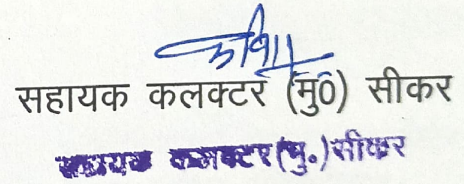 सहायक कलक्टर (मु0) सीकर
सहायक कलक्टर (मु.) सीकर